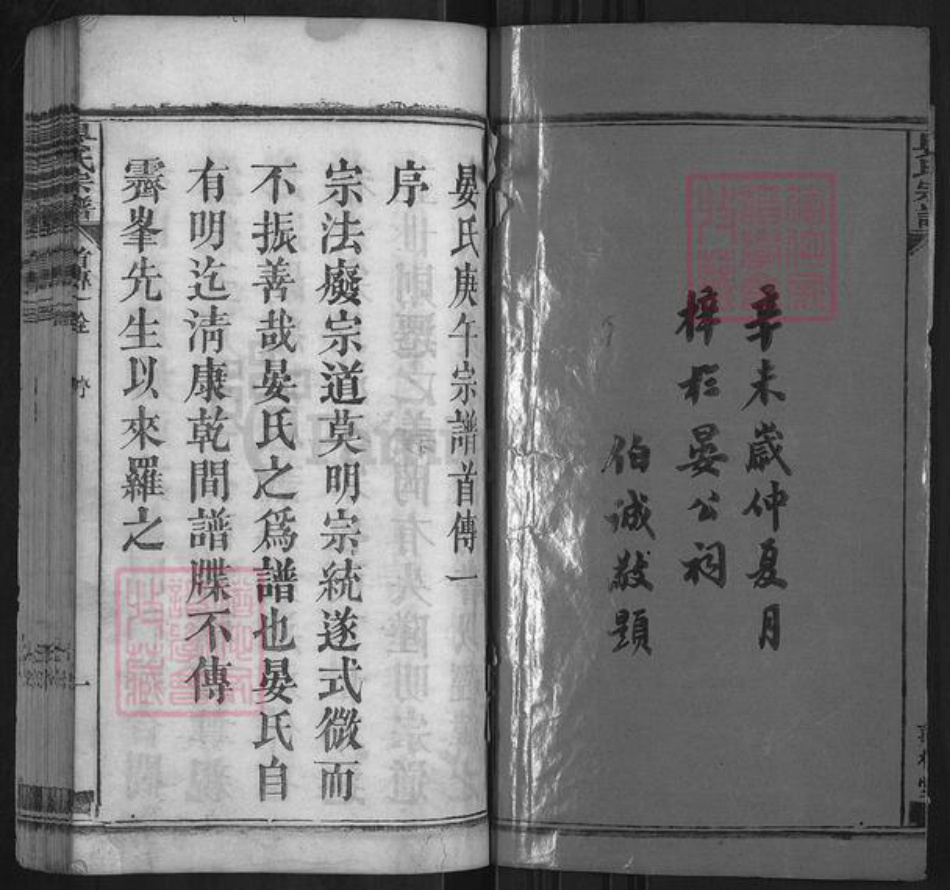 辛未歲仲夏月
梓於晏公祠
伯誠敬題
晏氏宗譜
晏氏庚午宗譜首傳一
序
宗法廢宗道莫明宗統遂式微而
不振善哉晏氏之爲譜也晏氏自
有明迄淸康乾間譜牒不傳
霽峯先生以來羅之
晏氏宗譜
首傳一
序
一